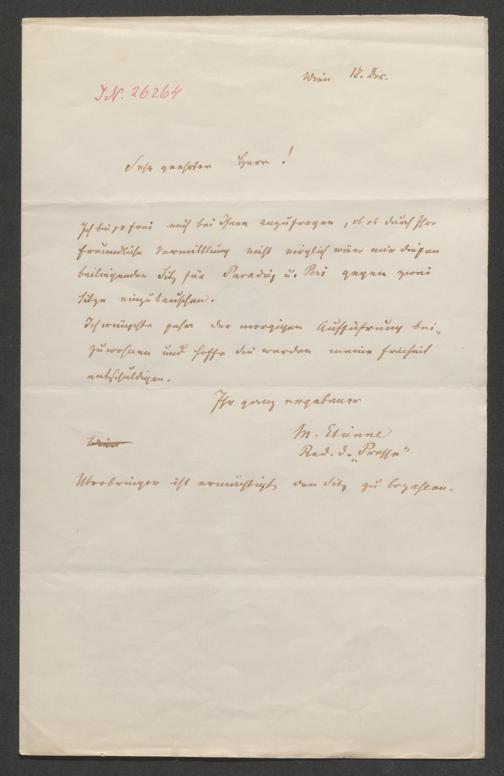 Wien 18. Dec.
I.N. 26264
Sehr geehrter Herr!
Ich bin so frei mich bei Ihnen anzufragen, ob es durch Ihre
freundliche Vermittlung nicht möglich wäre mir diesen
beiliegenden Sitz für Paradies u. Peri gegen zwei
Sitze einzutauschen.
Ich wünschte sehr der morgigen Aufführung bei-
zuwohnen und hoffe Sie werden meine Freiheit
entschuldigen.
Ihr ganz ergebener
M. Etienne
Red. d. "Presse"
Überbringer ist ermächtigt, den Sitz zu bezahlen.